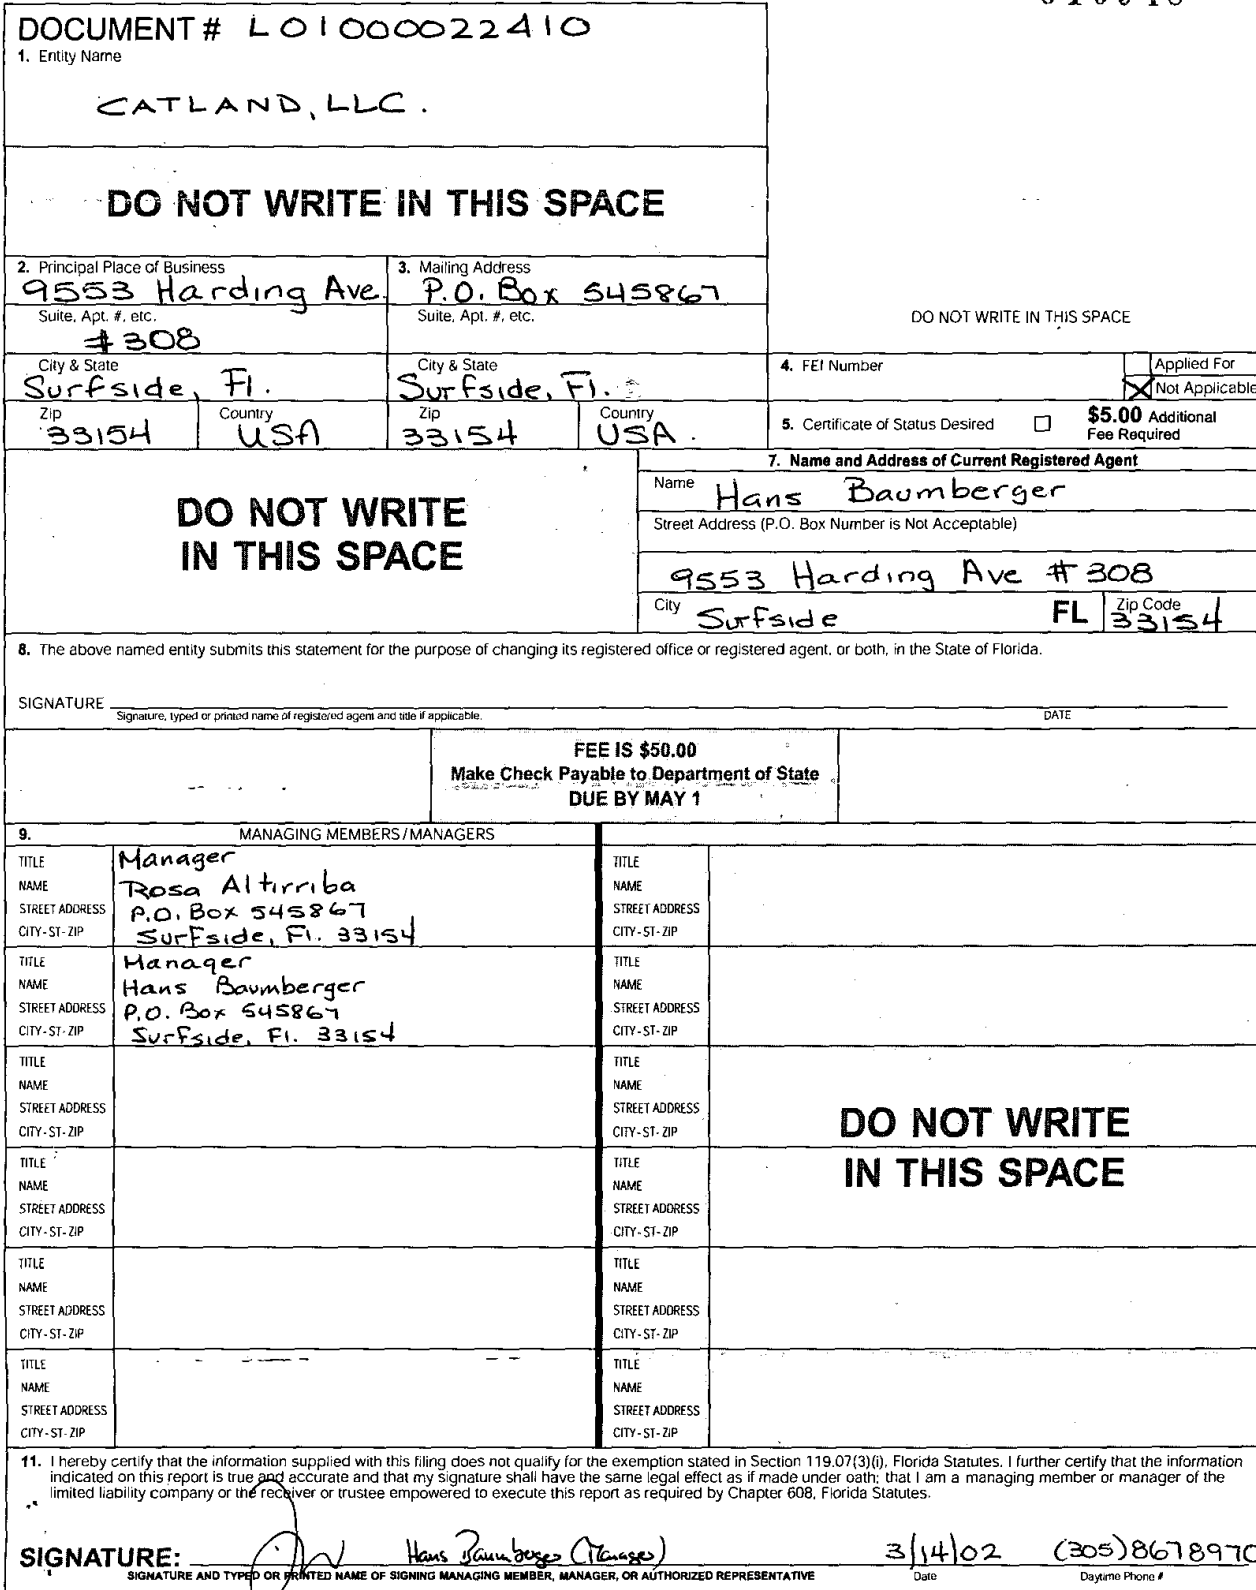 DOCUMENT # L01000022410
1. Entity Name
CATLAND, LLC.
DO NOT WRITE IN THIS SPACE
2. Principal Place of Business
9553 Harding Ave.
3. Mailing Address
P.O. Box 545867
Suite, Apt. #, etc.
#308
Suite, Apt. #, etc.
DO NOT WRITE IN THIS SPACE
City & State
Surfside, Fl.
City & State
Surfside, Fl.
4. FEI Number
Applied For
X Not Applicable
Zip
33154
Country
USA
Zip
33154
Country
USA.
5. Certificate of Status Desired
$5.00 Additional
Fee Required
DO NOT WRITE
IN THIS SPACE
7. Name and Address of Current Registered Agent
Name Hans Baumberger
Street Address (P.O. Box Number is Not Acceptable)
9553 Harding Ave #308
City Surfside FL Zip Code 33154
8. The above named entity submits this statement for the purpose of changing its registered office or registered agent, or both, in the State of Florida.
SIGNATURE
Signature, typed or printed name of registered agent and title if applicable. DATE
FEE IS $50.00
Make Check Payable to Department of State
DUE BY MAY 1
9. MANAGING MEMBERS/MANAGERS
TITLE Manager
NAME Rosa Altirriba
STREET ADDRESS P.O. Box 545867
CITY-ST-ZIP Surfside, Fl. 33154
TITLE
NAME
STREET ADDRESS
CITY-ST-ZIP
TITLE Manager
NAME Hans Baumberger
STREET ADDRESS P.O. Box 545867
CITY-ST-ZIP Surfside, Fl. 33154
TITLE
NAME
STREET ADDRESS
CITY-ST-ZIP
TITLE
NAME
STREET ADDRESS
CITY-ST-ZIP
TITLE
NAME
STREET ADDRESS
CITY-ST-ZIP
DO NOT WRITE
IN THIS SPACE
TITLE
NAME
STREET ADDRESS
CITY-ST-ZIP
TITLE
NAME
STREET ADDRESS
CITY-ST-ZIP
TITLE
NAME
STREET ADDRESS
CITY-ST-ZIP
TITLE
NAME
STREET ADDRESS
CITY-ST-ZIP
TITLE
NAME
STREET ADDRESS
CITY-ST-ZIP
TITLE
NAME
STREET ADDRESS
CITY-ST-ZIP
11. I hereby certify that the information supplied with this filing does not qualify for the exemption stated in Section 119.07(3)(i), Florida Statutes. I further certify that the information
indicated on this report is true and accurate and that my signature shall have the same legal effect as if made under oath; that I am a managing member or manager of the
limited liability company or the receiver or trustee empowered to execute this report as required by Chapter 608, Florida Statutes.
SIGNATURE: Hans Baumberger (Manager) 3/14/02 (305)8678970
SIGNATURE AND TYPED OR PRINTED NAME OF SIGNING MANAGING MEMBER, MANAGER, OR AUTHORIZED REPRESENTATIVE Date Daytime Phone #